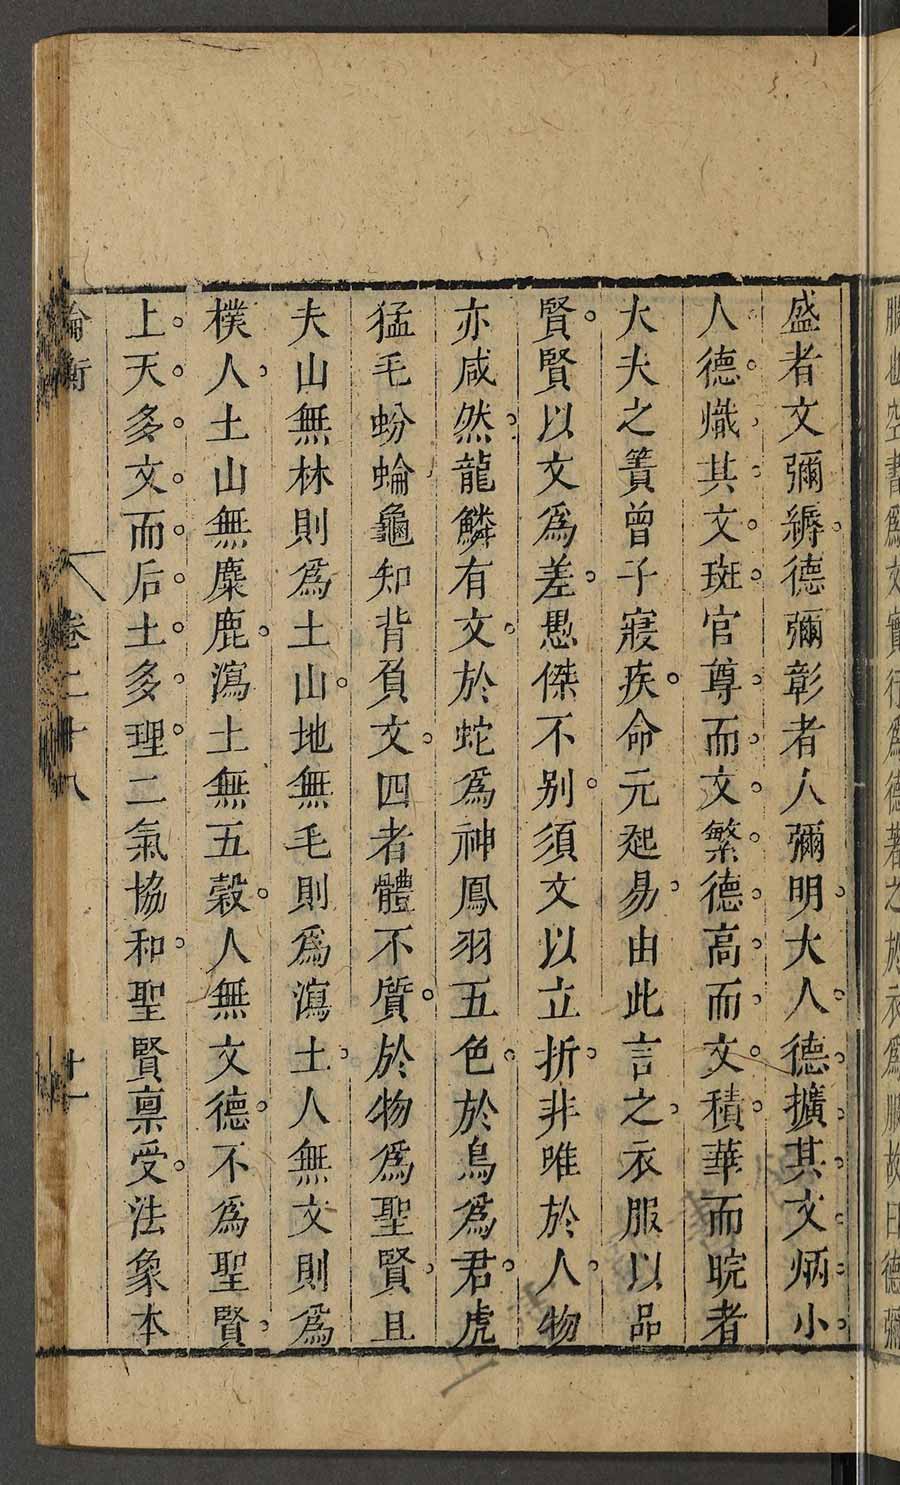 服也空書爲文實行爲德著之於衣爲服故曰德彌
盛者文彌縟德彌彰者人彌明大人德擴其文炳小
人德熾其文斑官尊而文繁德高而文積華而睆者
大夫之簀曾子寢疾命元起易由此言之衣服以品
賢賢以文爲差愚傑不别須文以立折非唯於人物
亦咸然龍鱗有文於蛇爲神鳳羽五色於鳥爲君虎
猛毛蚡蜦龜知背負文四者體不質於物爲聖賢且
夫山無林則爲土山地無毛則爲瀉土人無文則爲
樸人土山無麋鹿瀉土無五穀人無文德不爲聖賢
上天多文而后土多理二氣協和聖賢禀受法象本
論衡 卷二十八 十一